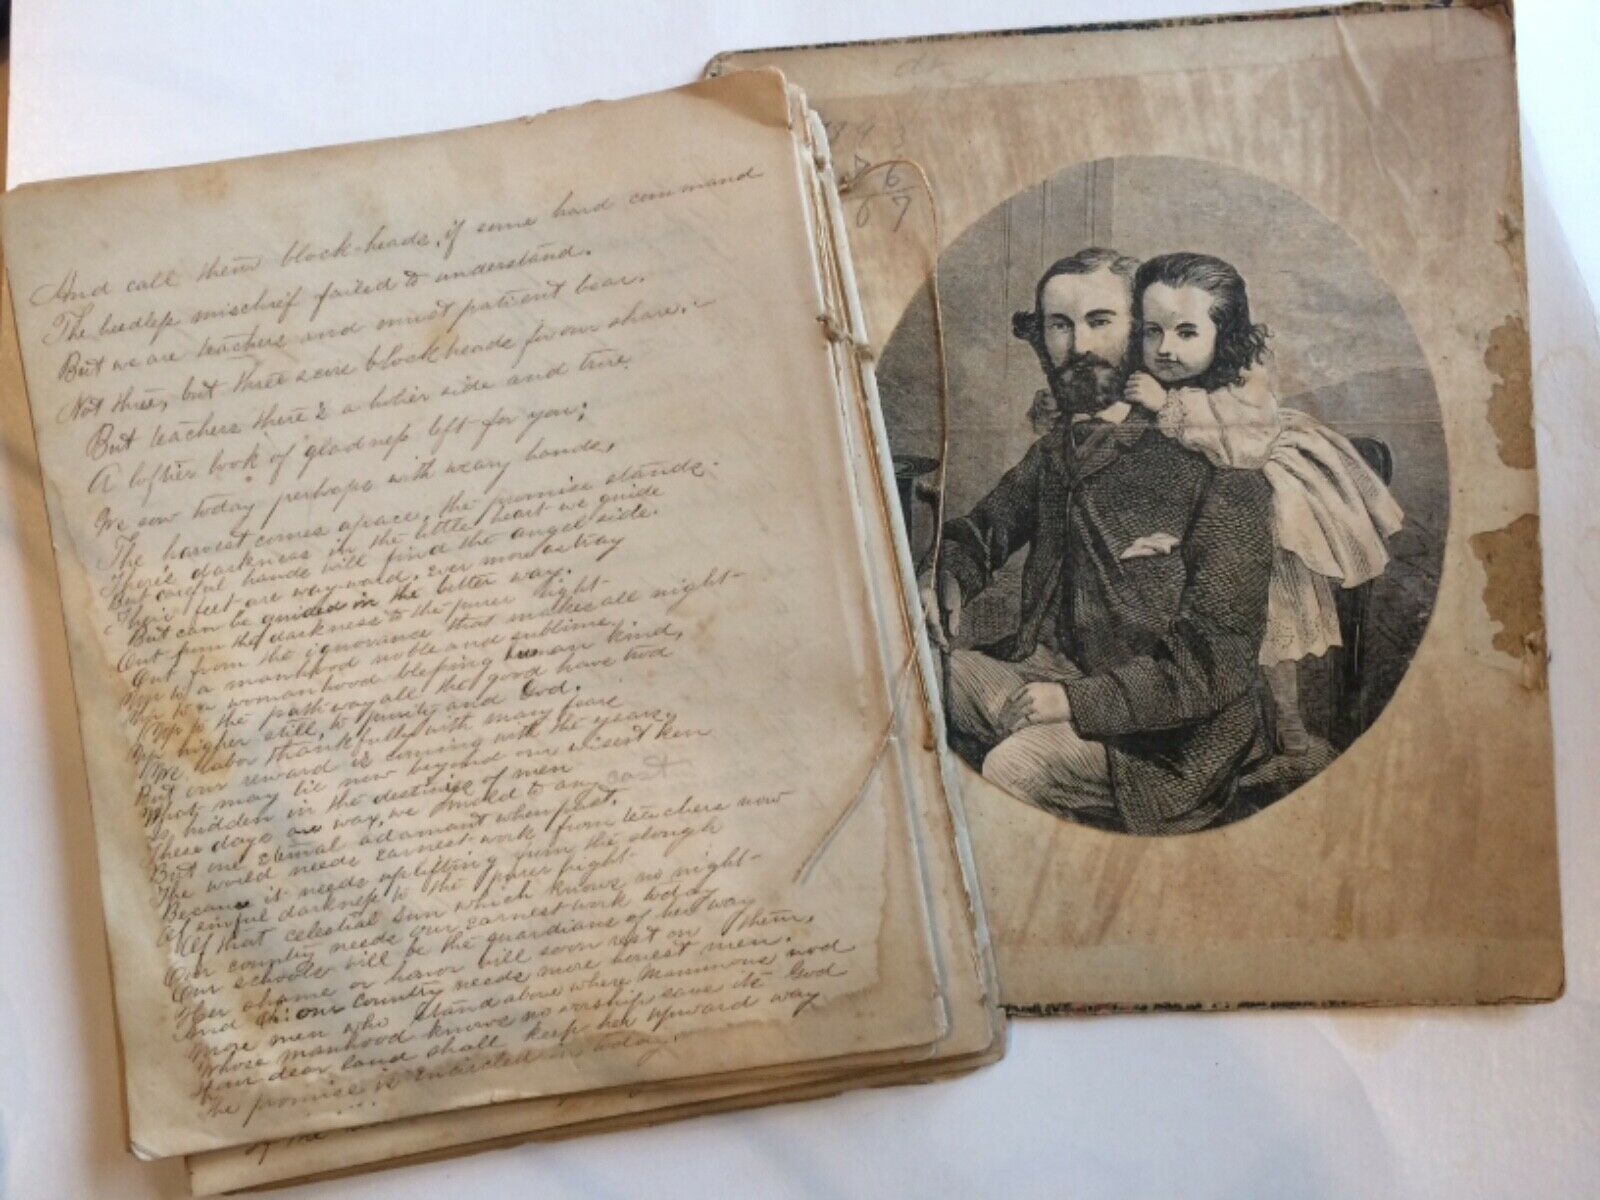 And call them block-heads, if some hard command
The heedless mischief failed to understand.
But we are teachers and must patient bear.
Not three, but three score block heads for our share.
But teachers there's a holier side and true
A loftier book of gladness left for you;
We sow today perhaps with weary hands,
The harvest comes apace, the promise stands.
There's darkness in the little heart we guide
But careful hands will find the angel side.
Their feet are wayward, ever more astray
But can be guided in the better way.
Out from the darkness to the purer light
Out from the ignorance that makes all night
Up to a manhood noble and sublime,
Up to a womanhood blessing human kind,
Up to the pathway all the good have trod
Up higher still, to purity and God.
We labor thankfully with many fears
But our reward is coming with the years,
What may lie now beyond our wisest ken
Is hidden in the destinies of men
These days are wax, we mould to any cast
But one eternal adamant when past.
The world needs earnest work from teachers now
Because it needs uplifting from the slough
Of sinful darkness to the purer light
Of that celestial sun which knows no night
Our country needs our earnest work today
Our schools will be the guardians of her way
Her shame or honor will soon rest on them.
And oh! our country needs more honest men.
More men who stand above where Mammons nod
Whose manhood knows no worship save its God
Our dear land shall keep her upward way
The promise is encircled in today.
1893
6
67